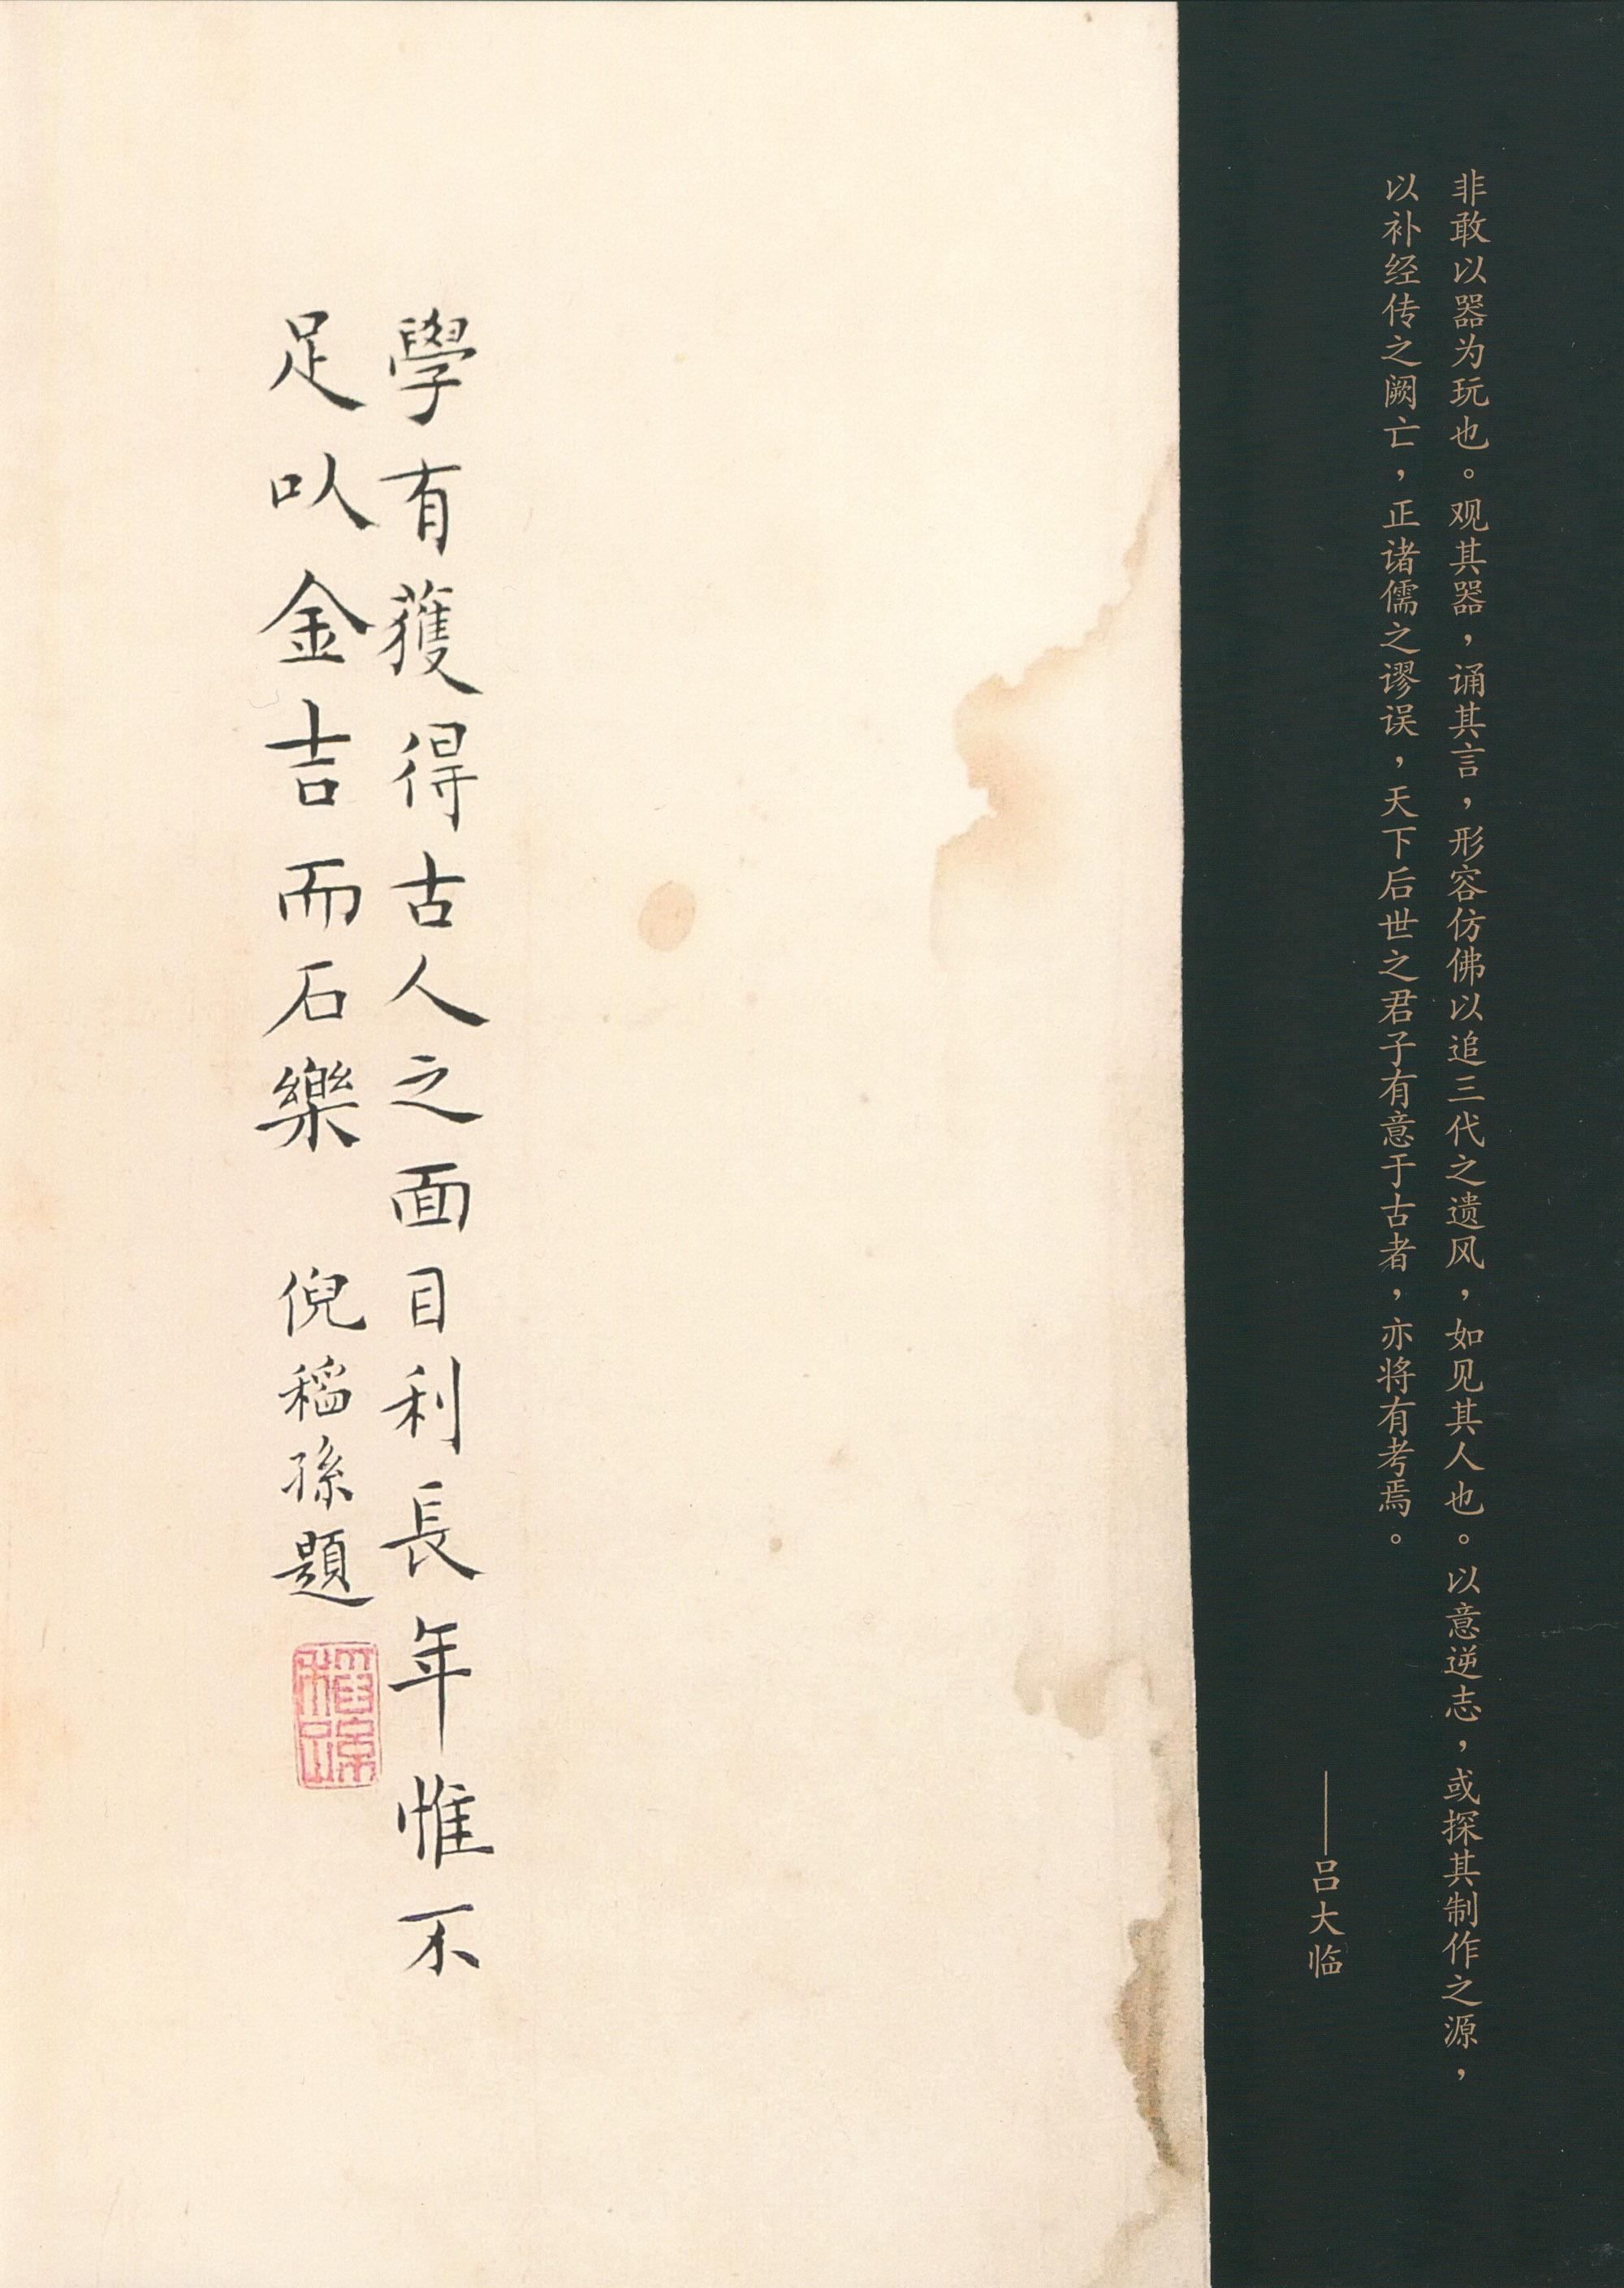 非敢以器为玩也。观其器，诵其言，形容仿佛以追三代之遗风，如见其人也。以意逆志，或探其制作之源，
以补经传之阙亡，正诸儒之谬误，天下后世之君子有意于古者，亦将有考焉。
——吕大临
學有獲得古人之面目利長年惟不
足㕥金吉而石樂 倪稻孫題
稻孫